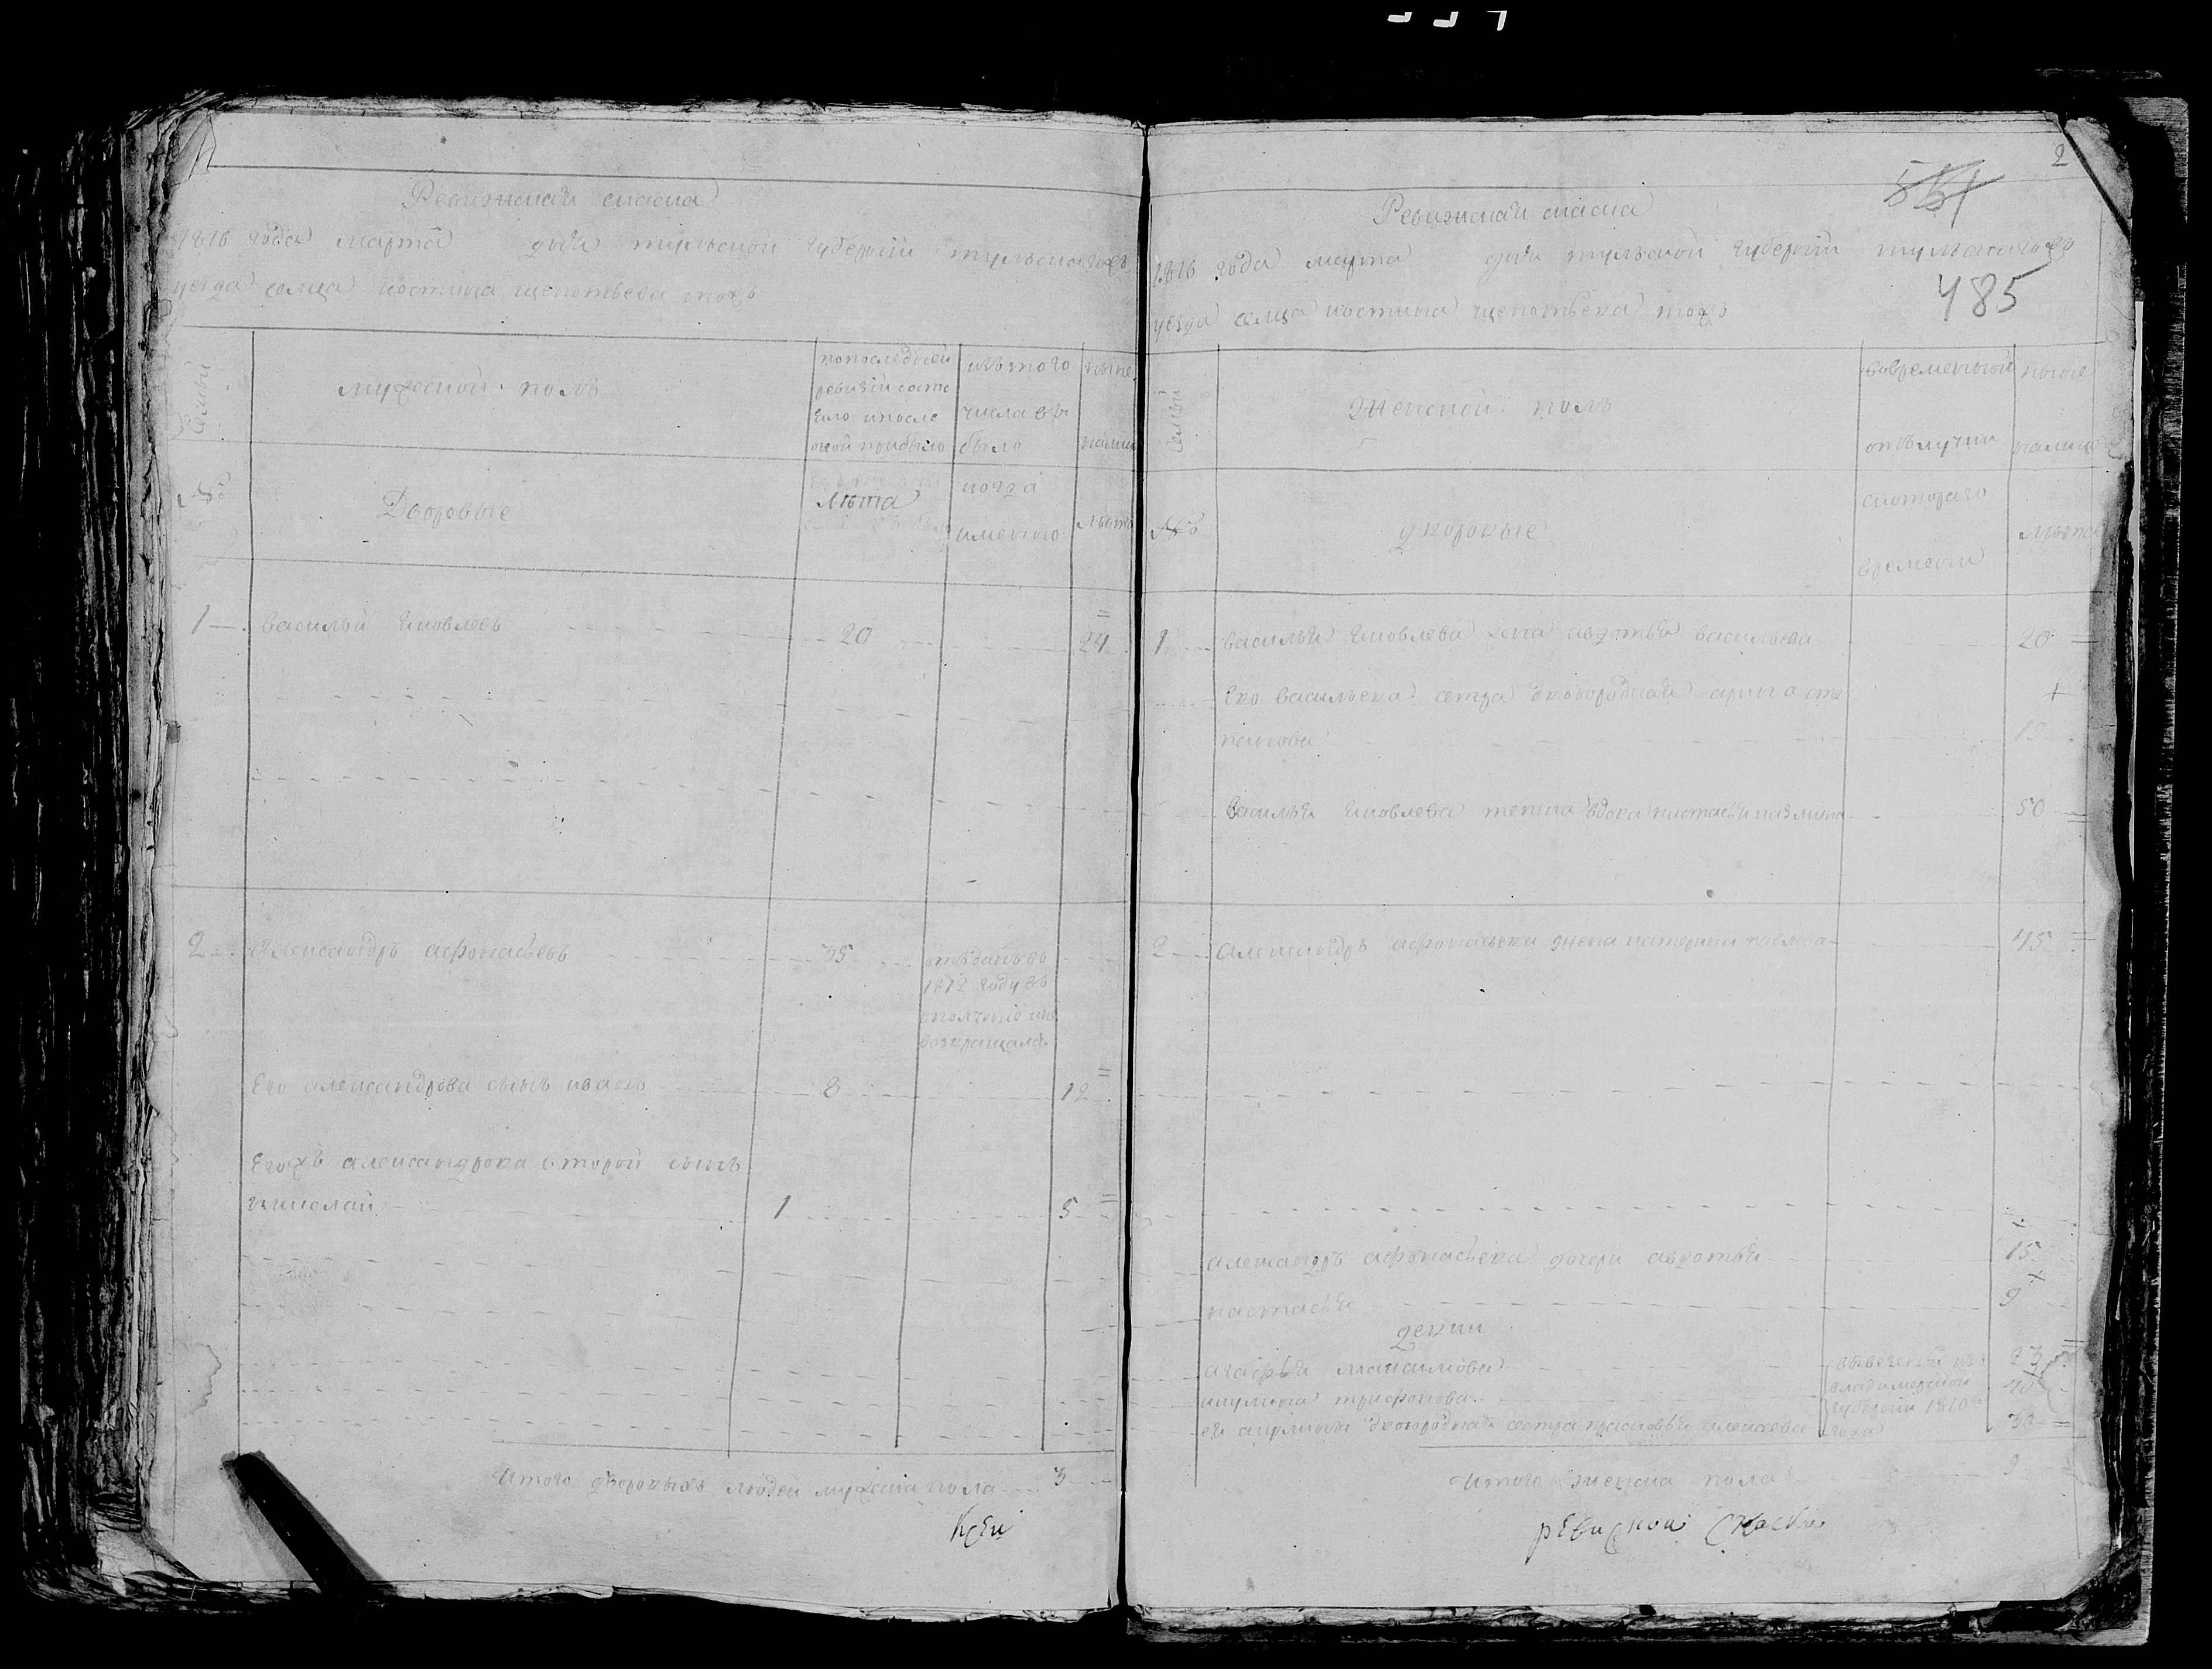 Ревижская скаска
1816 года марта дня тульской губернии тульскагожъ
уезда селца костина щепотьева тожъ
Семьи
мужеской полъ
попоследней
ревизіи состо
яло ипосле
оной прибыло
изъ того
числа вы
было
ныне
налицо
№
Дворовые
Лѣта
когда
именно
Лѣта
1 Василей Яковлевъ 20 24
2 Александръ афонасьевъ 35
отъданъ въ
1812 году въ
ополчение не
возвращался
Его александрова сынъ иванъ 8 12
Егожъ александрова второй сынъ
николай 1 5
Итого дворовыхъ людей мужеска пола 3
Ксеи
2
551
485
Ревижская скаска
1816 года марта дня тульской губернии тульскагожъ
уезда селца костина щепотьева тожъ
Семьи
Женской полъ
вовременной
отълучки
ныне
налицо
№
дворовые
скотораго
времени
Лѣта
1 василья Яковлева жена авдотья васильева 20
Его васильева сестра двоюродная арина сте
панова 19
Василья Яковлева тетка вдова настасья казмина 50
2 Александръ афонасьева жена катерина павлова 45
александръ афонасьева дочери авдотья 15
настасья 9
девки
агафья максимова 23
акулина трифонова 40
ей акулины двоюродная сестра прасковья алексеева 30
вывезены изъ
владимерской
губернии 1810
года
Итого женска пола 9
ревиской скаски